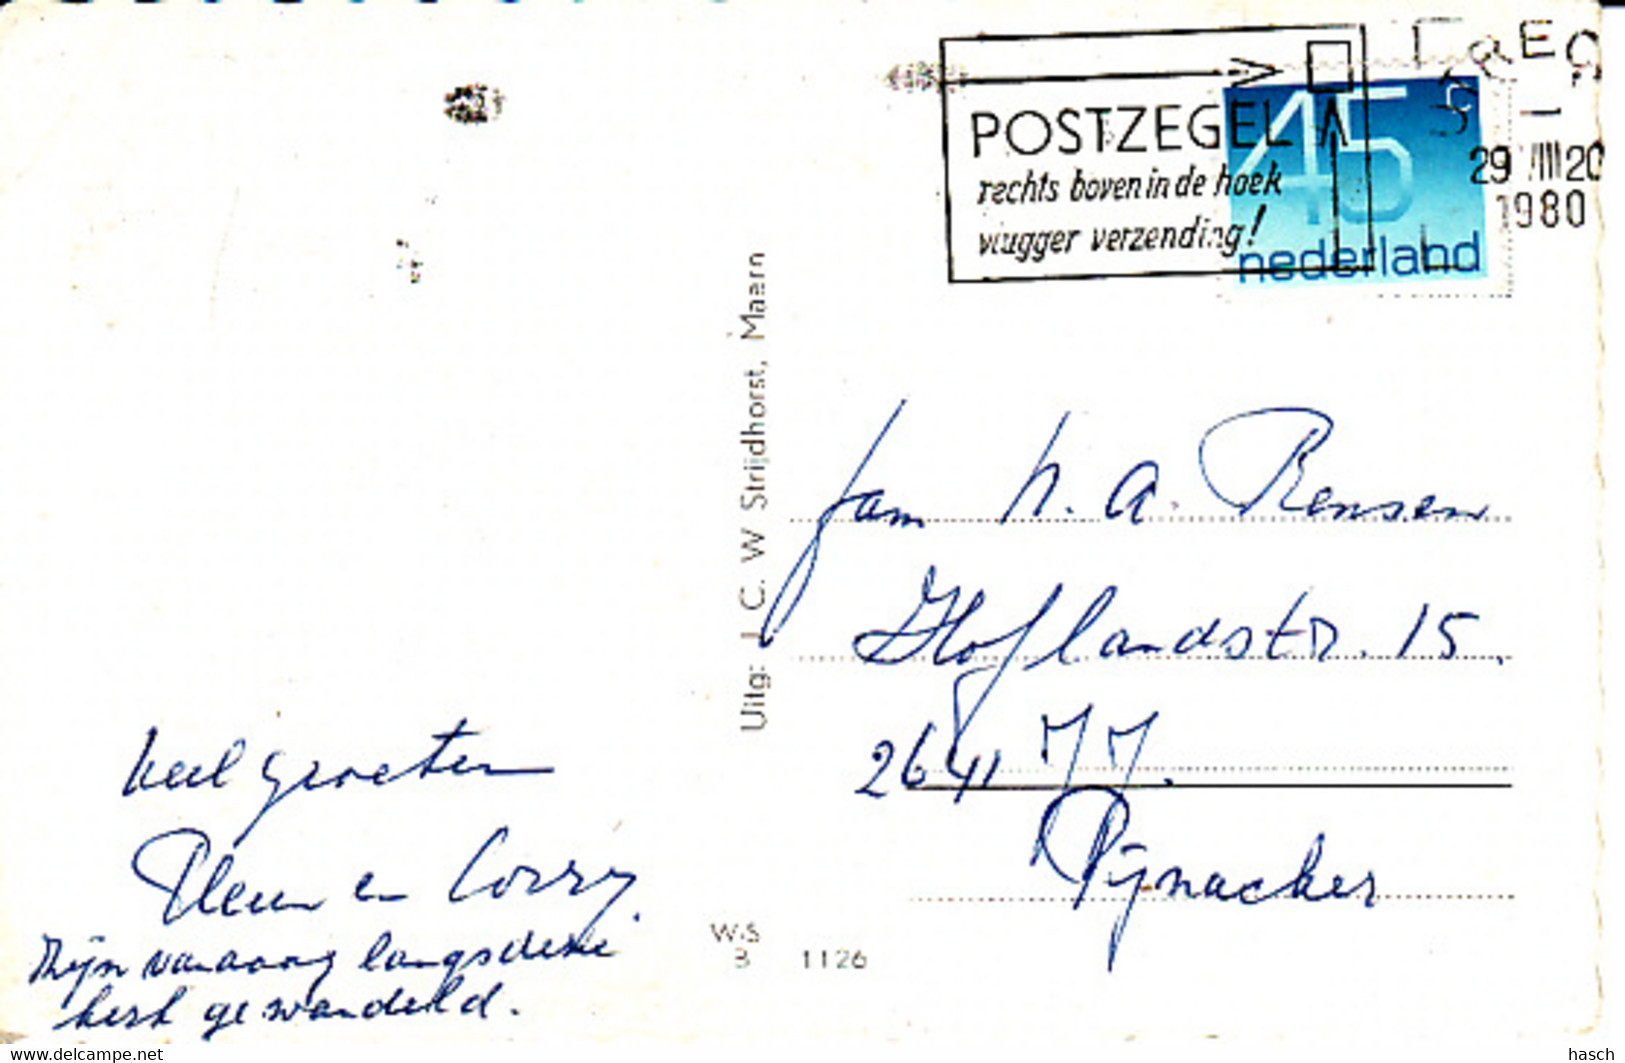 UTREC
POSTZEGEL
rechts boven in de hoek
vlugger verzending!
45
nederland
29 VIII 20
1980
Uitg: J. C. W Strijdhorst, Maarn
Fam H. A. Rensen
Hoflandstr. 15.
2641 JJ.
Pijnacker
veel groeten
Pleun en Corry.
Zijn vandaag langs deze
kerk gewandeld.
W.S
B 1126
www.delcampe.net
hasch